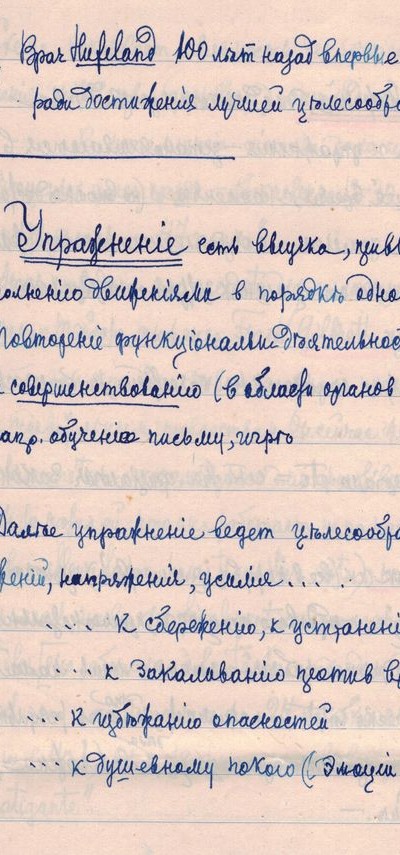 Врач Hufeland 100 лѣт назад впервые
ради достиженія лучшей цѣлесообр
Упражненіе есть выучка, прив
олненію движеніями в порядкѣ одно
повтореніе функціональн. дѣятельнос
совершенствованію (в области органов
апр. обученіе письму, игрѣ
Далѣе упражненіе ведет цѣлесообр
жений, напряженія, усилія . . . .
. . . . к сбереженію, к устранені
. . . к закаливанію против в
. . . к избѣжанію опасностей
. . . к душевному покою (Эмоціи